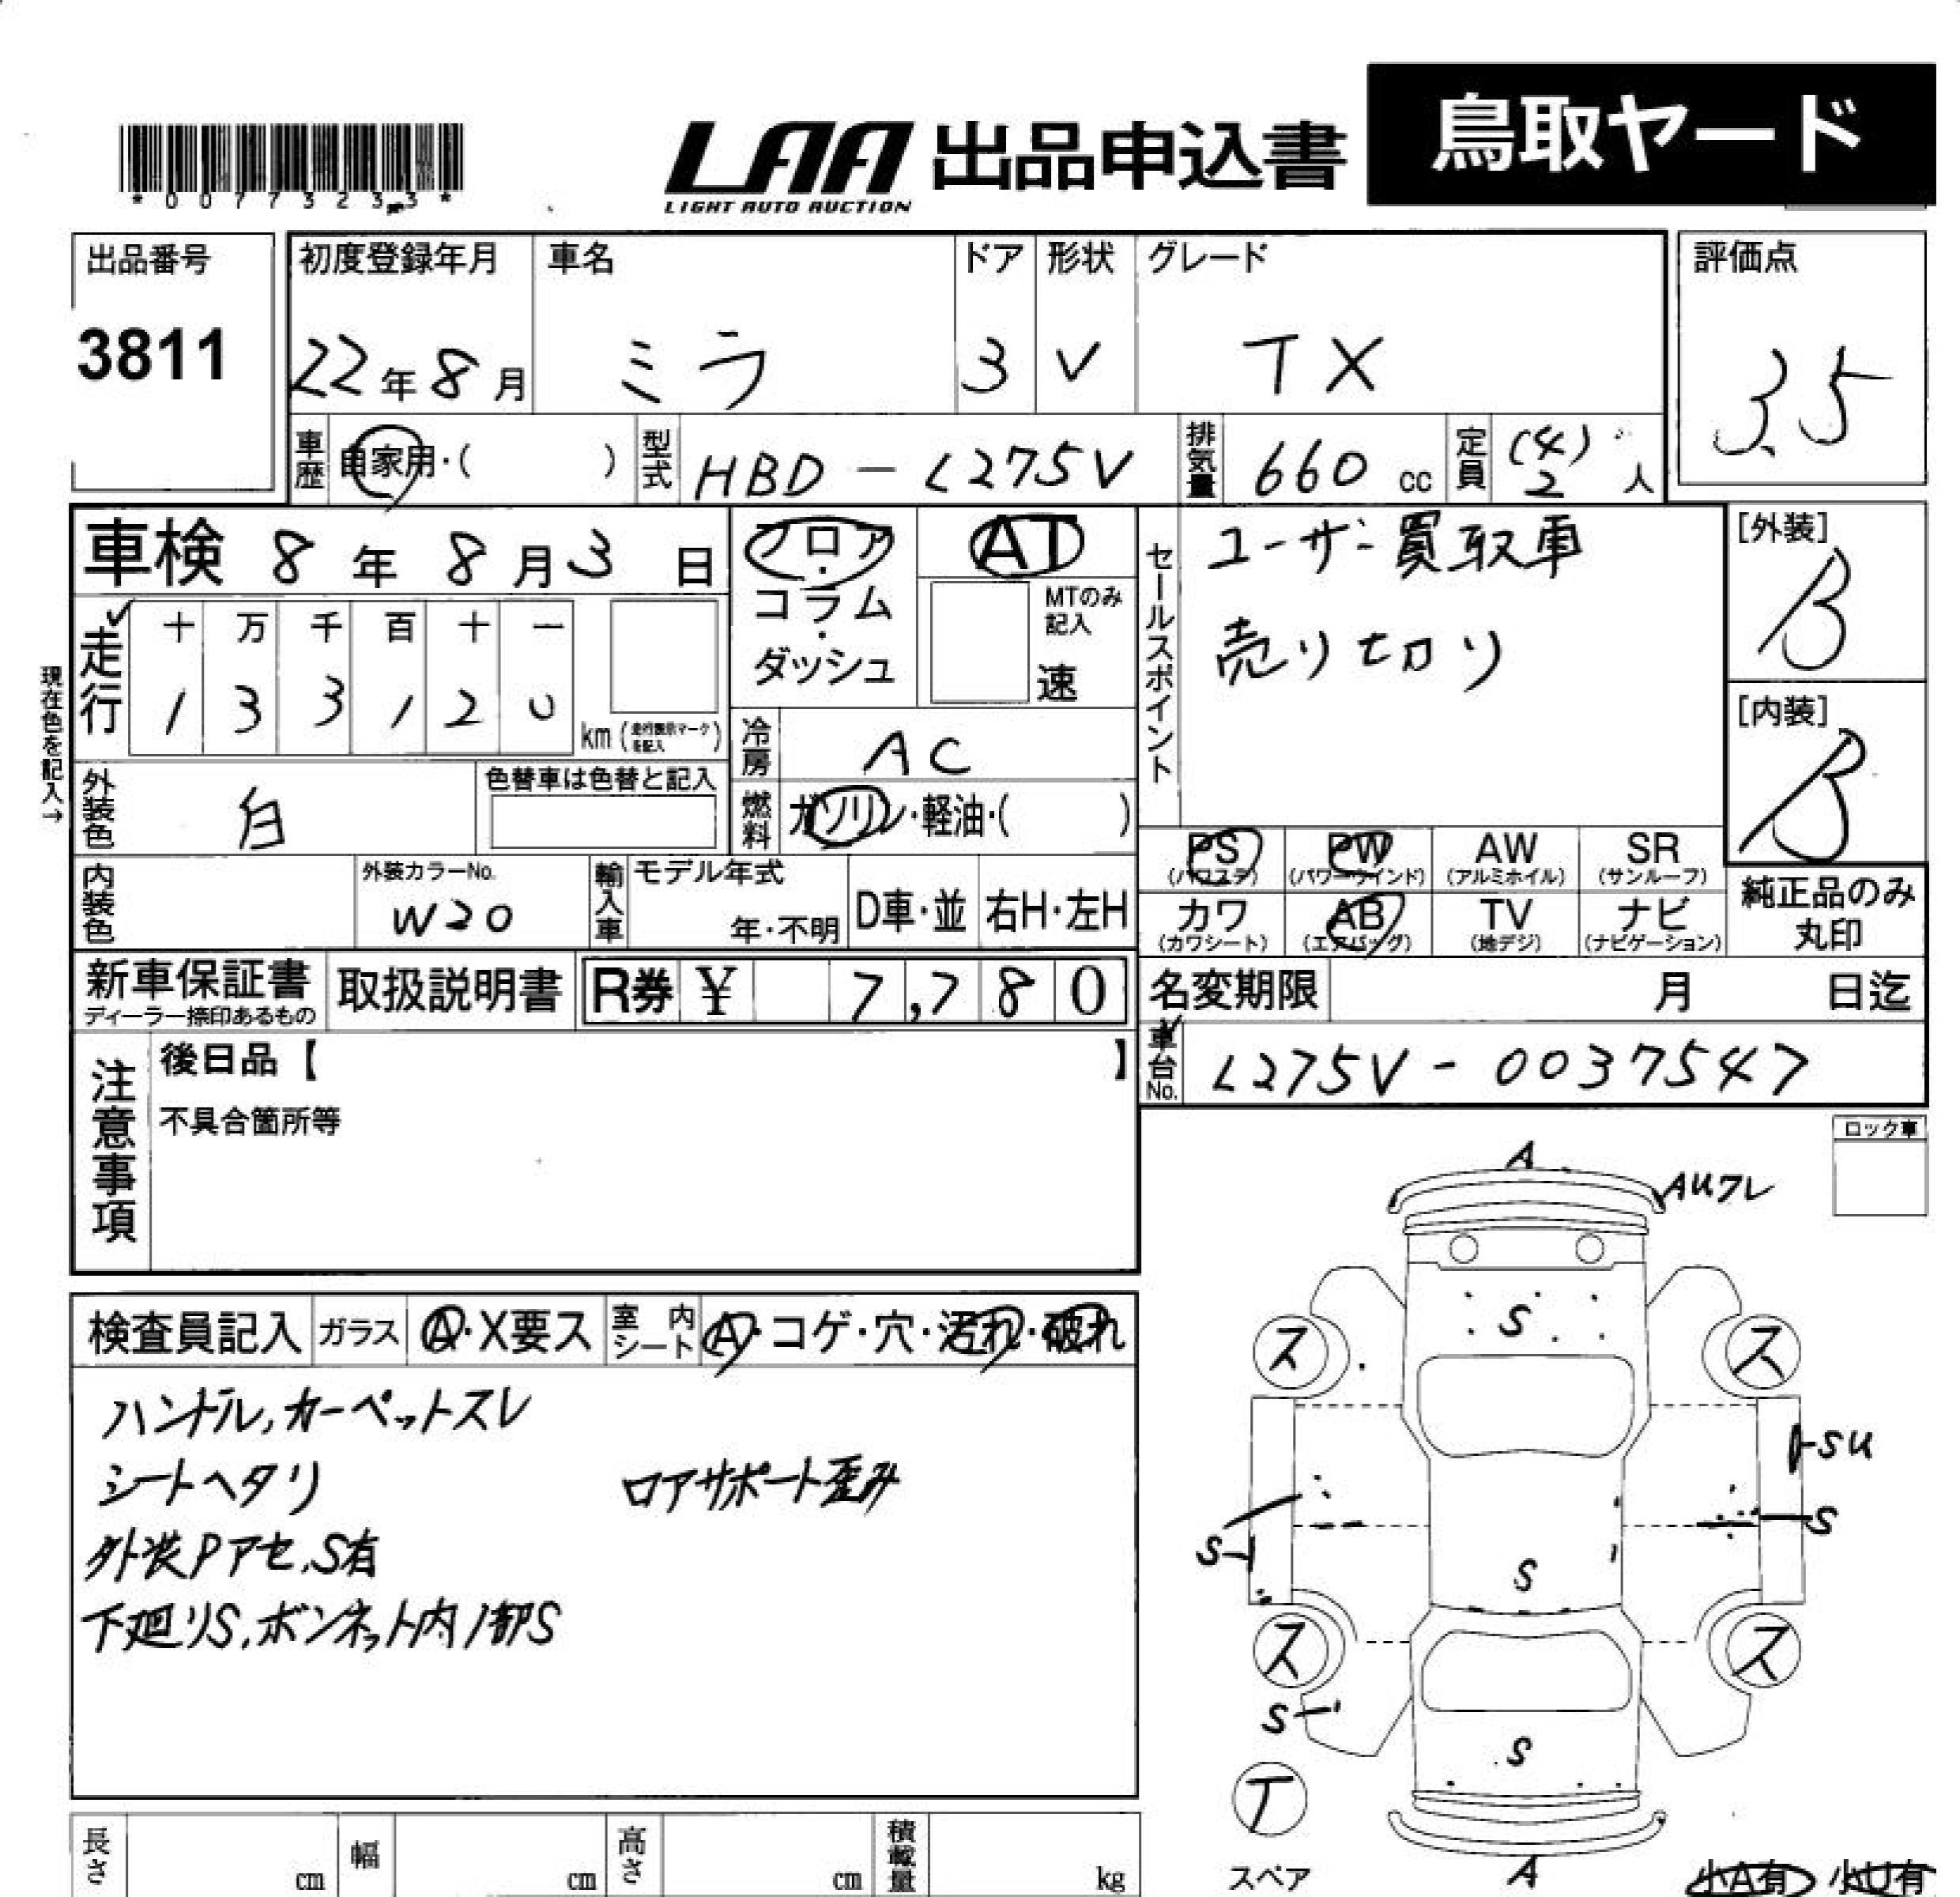 鳥取ヤード
LAA 出品申込書
LIGHT AUTO AUCTION
*00773233*
出品番号
3811
初度登録年月 車名 ドア 形状 グレード
22年8月 ミラ 3 V TX
評価点
3.5
車歴 自家用・( ) 型式 HBD-L275V 排気量 660 cc 定員 (4) 2 人
車検 8年8月3日
フロア・コラム・ダッシュ
AT
MTのみ記入
速
セールスポイント
ユーザー買取車
売り切り
[外装]
B
[内装]
B
現在色を記入→
走行 十 万 千 百 十 一
1 3 3 1 2 0 km (走行表示マークを記入)
冷房 AC
外装色 白 色替車は色替と記入
燃料 ガソリン・軽油・( )
内装色 外装カラーNo. W20
輸入車 モデル年式 年・不明 D車・並 右H・左H
PS (パワステ) PW (パワーウインド) AW (アルミホイル) SR (サンルーフ)
カワ (カワシート) AB (エアバッグ) TV (地デジ) ナビ (ナビゲーション)
純正品のみ丸印
新車保証書 ディーラー捺印あるもの 取扱説明書 R券 ¥ 7,780
名変期限 月 日迄
車台No. L275V-0037547
注意事項
後日品【 】
不具合箇所等
ロック車
検査員記入 ガラス A・X要ス 室内シート A・コゲ・穴・汚れ・破れ
ハンドル,カーペットスレ
シートヘタリ ロアサポート歪み
外装Pアセ,S有
下廻りS,ボンネット内1部S
A
AUワレ
S
ス ス
SU
S
S
S
ス ス
S
S
T
スペア
A
小A有 小U有
長さ cm 幅 cm 高さ cm 積載量 kg